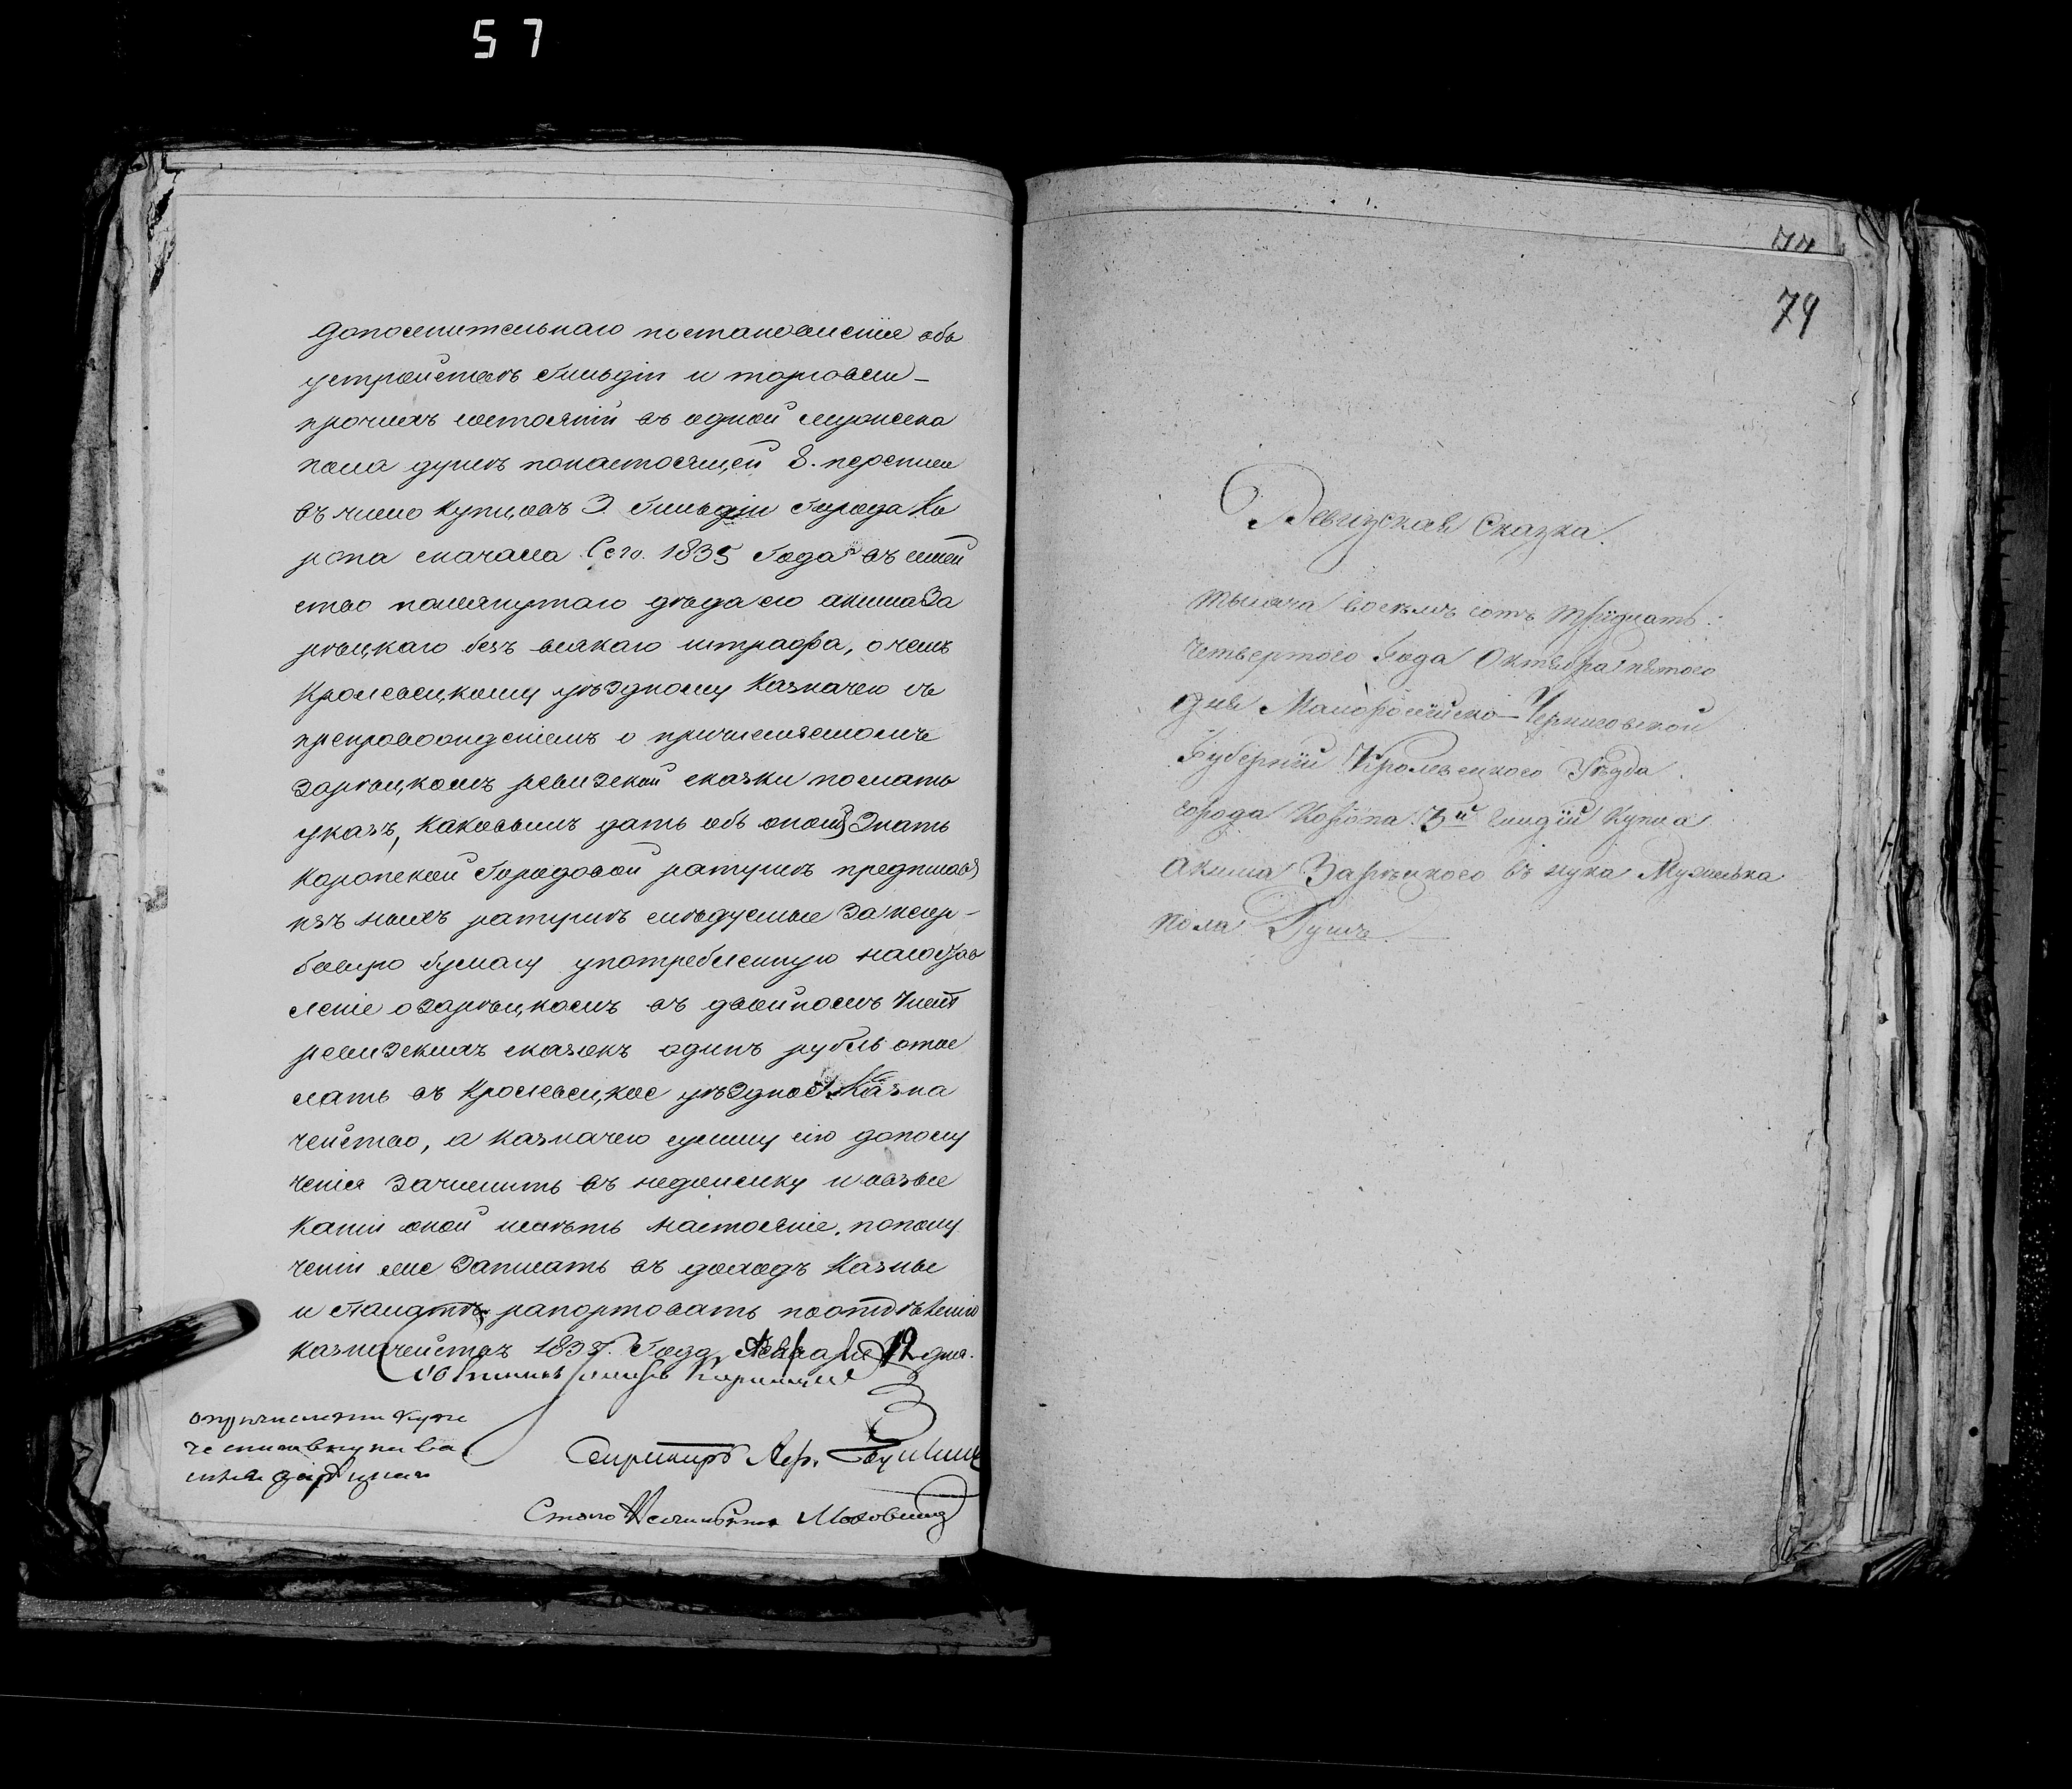 57
дополнительнаго постановления объ
устройстве Гильдiи и торговли
прочихъ состоянiй въ одной мужеска
пола души понастоящей 8. переписи
въ число купцовъ 3 Гильдiи Города Ко
ропа сначала Сего 1835 Года въ семей
ство помянутаго деда его акима За
рецкаго безъ всякаго штрафа, о чемъ
Кролевецкому уѣздному Казначею съ
препровождениемъ о причисляемомъ
Зарецкомъ ревизской сказки послать
указъ, каковымъ дать объ оной Знать
Коропской Городовой ратуши предписавъ
ратуши следуемые За гер-
бовую бумагу употребленную
о Зарецкомъ въ двойномъ числе
ревизскихъ сказокъ одинъ рубль отос
лать въ Кролевецкое уѣздное Казна
чейство, а казначею сумму сiю дополу
ченiя Зачислить въ недоимку и взыс
канiи оной иметь настоянiе. пополу
ченiи же Записать въ доходъ Казны
и Палате рапортовать поотделению
казначействъ 1835. Года Января 12 дня.
Столо Начальникъ
79
Ревизская Сказка.
тысяча восемь сотъ тридцать
четвертого Года Октября пятого
дня Малоросiйско-Черниговской
Губернiи Кролевецкого Уезда
города Коропа 3й гилдiи купца
акима Зарецкого внука Мужеска
пола Душе